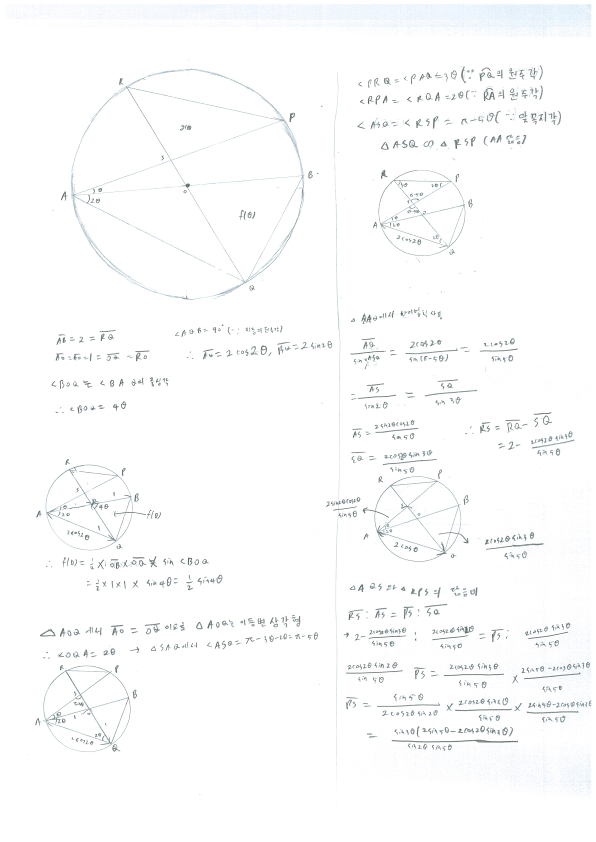 R
P
2(θ)
S
A
3θ
2θ
O
B
f(θ)
Q
AB = 2 = RQ
<AQB = 90°
∴ AQ = 2cos2θ, BQ = 2sin2θ
<BOQ 는 <BAQ의 중심각
∴ <BOQ = 4θ
R
P
S
A
B
4θ
f(θ)
2cos2θ
Q
∴ f(θ) = 1/2 × OB × OQ × sin<BOQ
= 1/2 × 1 × 1 × sin4θ = 1/2 sin4θ
△AOQ에서 AO = OQ 이므로 △AOQ는 이등변삼각형
∴ <OQA = 2θ → △SAQ에서 <ASQ = π-3θ-2θ = π-5θ
R
P
S
A
B
2θ
2cos2θ
Q
<PRQ = <PAQ = 3θ (∵ PQ의 원주각)
<RPA = <RQA = 2θ (∵ RA의 원주각)
<ASQ = <RSP = π-5θ (∵ 맞꼭지각)
△ASQ ∽ △RSP (AA닮음)
R
P
3θ
2θ
A
B
2cos2θ
Q
AQ / sin<ASQ = 2cos2θ / sin(π-5θ) = 2cos2θ / sin5θ
= AS / sin2θ = SQ / sin3θ
AS = 2sin2θcos2θ / sin5θ
∴ RS = RQ - SQ
= 2 - 2cos2θsin3θ / sin5θ
SQ = 2cos2θsin3θ / sin5θ
R
P
2sin2θcos2θ / sin5θ
A
B
2cosθ
Q
2cos2θsin3θ / sin5θ
△AQS와 △RPS의 닮음비
RS : AS = PS : SQ
→ 2 - 2cos2θsin3θ / sin5θ : 2cos2θsin2θ / sin5θ = PS : 2cos2θsin3θ / sin5θ
2cos2θsin2θ / sin5θ PS = 2cos2θsin3θ / sin5θ × 2sin5θ-2cos2θsin3θ / sin5θ
PS = sin5θ / 2cos2θsin2θ × 2cos2θsin3θ / sin5θ × 2sin5θ-2cos2θsin3θ / sin5θ
= sin3θ(2sin5θ-2cos2θsin3θ) / sin2θsin5θ